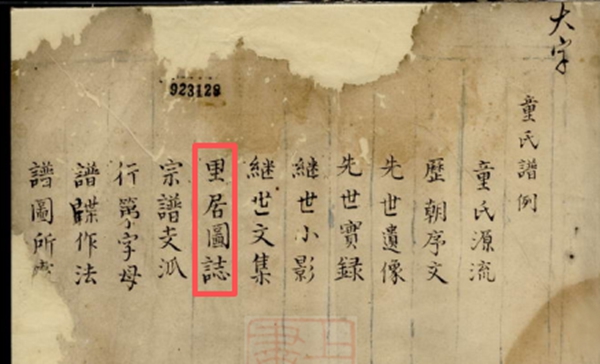 大字
童氏譜例
童氏源流
歷朝序文
先世遺像
先世實録
継世小影
継世文集
里居圖誌
宗譜支派
行第字母
譜牒作法
譜圖所
923128